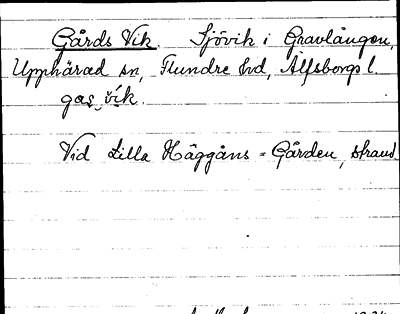 Gårds Vik. Sjövik i Gravlången,
Upphärad sn, Flundre hd, Älfsborgs l.
gas vík.
Vid Lilla Häggåns = Gården, strand